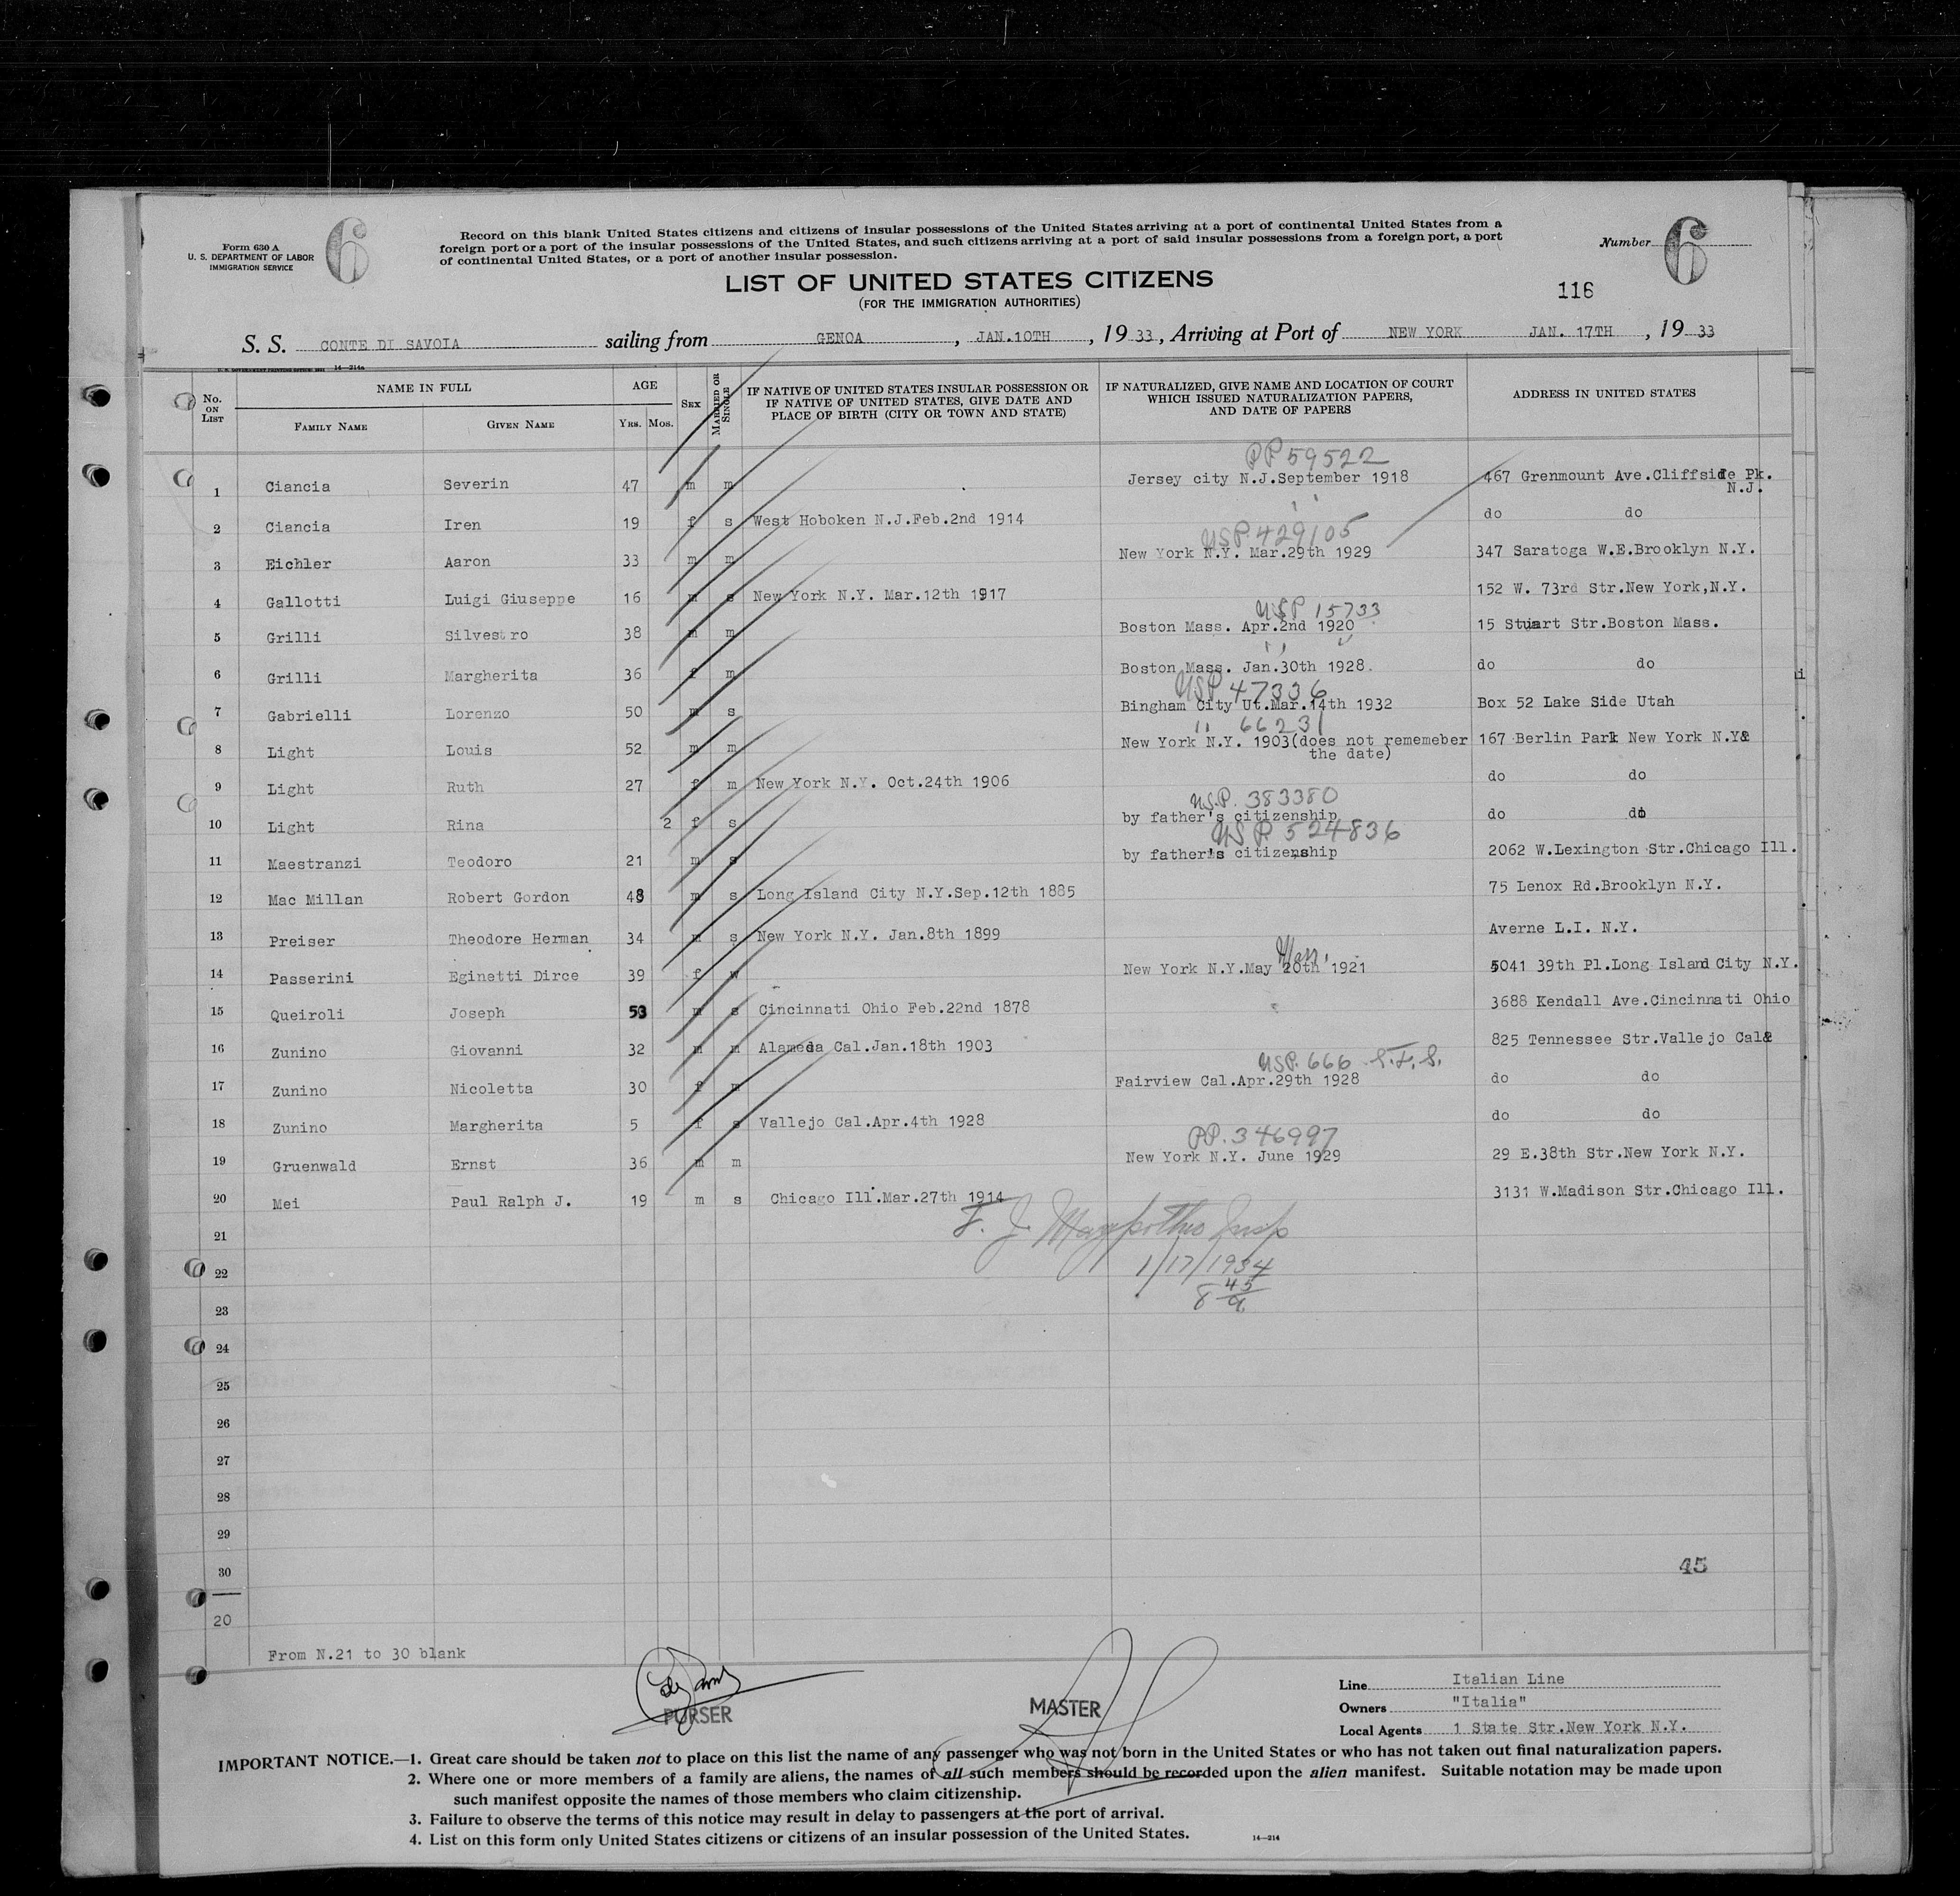 Form 630 A
U. S. DEPARTMENT OF LABOR
IMMIGRATION SERVICE
6
Record on this blank United States citizens and citizens of insular possessions of the United States arriving at a port of continental United States from a
foreign port or a port of the insular possessions of the United States, and such citizens arriving at a port of said insular possessions from a foreign port, a port
of continental United States, or a port of another insular possession.
Number 6
LIST OF UNITED STATES CITIZENS
(FOR THE IMMIGRATION AUTHORITIES)
116
S. S. CONTE DI SAVOIA sailing from GENOA, JAN.10TH, 1933, Arriving at Port of NEW YORK JAN. 17TH, 1933
14—214a
No. ON LIST NAME IN FULL AGE SEX MARRIED OR SINGLE IF NATIVE OF UNITED STATES INSULAR POSSESSION OR IF NATIVE OF UNITED STATES, GIVE DATE AND PLACE OF BIRTH (CITY OR TOWN AND STATE) IF NATURALIZED, GIVE NAME AND LOCATION OF COURT WHICH ISSUED NATURALIZATION PAPERS, AND DATE OF PAPERS ADDRESS IN UNITED STATES
FAMILY NAME GIVEN NAME YRS. MOS.
PP 59522
1 Ciancia Severin 47 m m Jersey city N.J.September 1918 467 Grenmount Ave.Cliffside Pk.
N.J.
2 Ciancia Iren 19 f s West Hoboken N.J.Feb.2nd 1914 do do
USP. 429105
3 Eichler Aaron 33 m m New York N.Y. Mar.29th 1929 347 Saratoga W.E.Brooklyn N.Y.
4 Gallotti Luigi Giuseppe 16 m s New York N.Y. Mar.12th 1917 152 W. 73rd Str.New York,N.Y.
USP 15733
5 Grilli Silvestro 38 m m Boston Mass. Apr.2nd 1920 15 Stuart Str.Boston Mass.
6 Grilli Margherita 36 f m Boston Mass. Jan.30th 1928. do do
USP 47336
7 Gabrielli Lorenzo 50 m s Bingham City Ut.Mar.14th 1932 Box 52 Lake Side Utah
" 66231
8 Light Louis 52 m m New York N.Y. 1903(does not rememeber 167 Berlin Park New York N.Y.
the date)
9 Light Ruth 27 f m New York N.Y. Oct.24th 1906 do do
US.P. 383380
10 Light Rina 2 f s by father's citizenship do do
USP. 524836
11 Maestranzi Teodoro 21 m s by father's citizenship 2062 W.Lexington Str.Chicago Ill.
12 Mac Millan Robert Gordon 48 m s Long Island City N.Y.Sep.12th 1885 75 Lenox Rd.Brooklyn N.Y.
13 Preiser Theodore Herman 34 m s New York N.Y. Jan.8th 1899 Averne L.I. N.Y.
14 Passerini Eginetti Dirce 39 f w New York N.Y.May 20th 1921 5041 39th Pl.Long Island City N.Y.
15 Queiroli Joseph 53 m s Cincinnati Ohio Feb.22nd 1878 3688 Kendall Ave.Cincinnati Ohio
16 Zunino Giovanni 32 m m Alameda Cal.Jan.18th 1903 825 Tennessee Str.Vallejo Cal.
USP. 666
17 Zunino Nicoletta 30 f m Fairview Cal.Apr.29th 1928 do do
18 Zunino Margherita 5 f s Vallejo Cal.Apr.4th 1928 do do
PP. 346997
19 Gruenwald Ernst 36 m m New York N.Y. June 1929 29 E.38th Str.New York N.Y.
20 Mei Paul Ralph J. 19 m s Chicago Ill.Mar.27th 1914 3131 W.Madison Str.Chicago Ill.
21
22 1/17/1934
23 8 45
24
25
26
27
28
29
30
45
20
From N.21 to 30 blank
PURSER
MASTER
Line Italian Line
Owners "Italia"
Local Agents 1 State Str.New York N.Y.
IMPORTANT NOTICE.—1. Great care should be taken not to place on this list the name of any passenger who was not born in the United States or who has not taken out final naturalization papers.
2. Where one or more members of a family are aliens, the names of all such members should be recorded upon the alien manifest. Suitable notation may be made upon
such manifest opposite the names of those members who claim citizenship.
3. Failure to observe the terms of this notice may result in delay to passengers at the port of arrival.
4. List on this form only United States citizens or citizens of an insular possession of the United States.
14—214